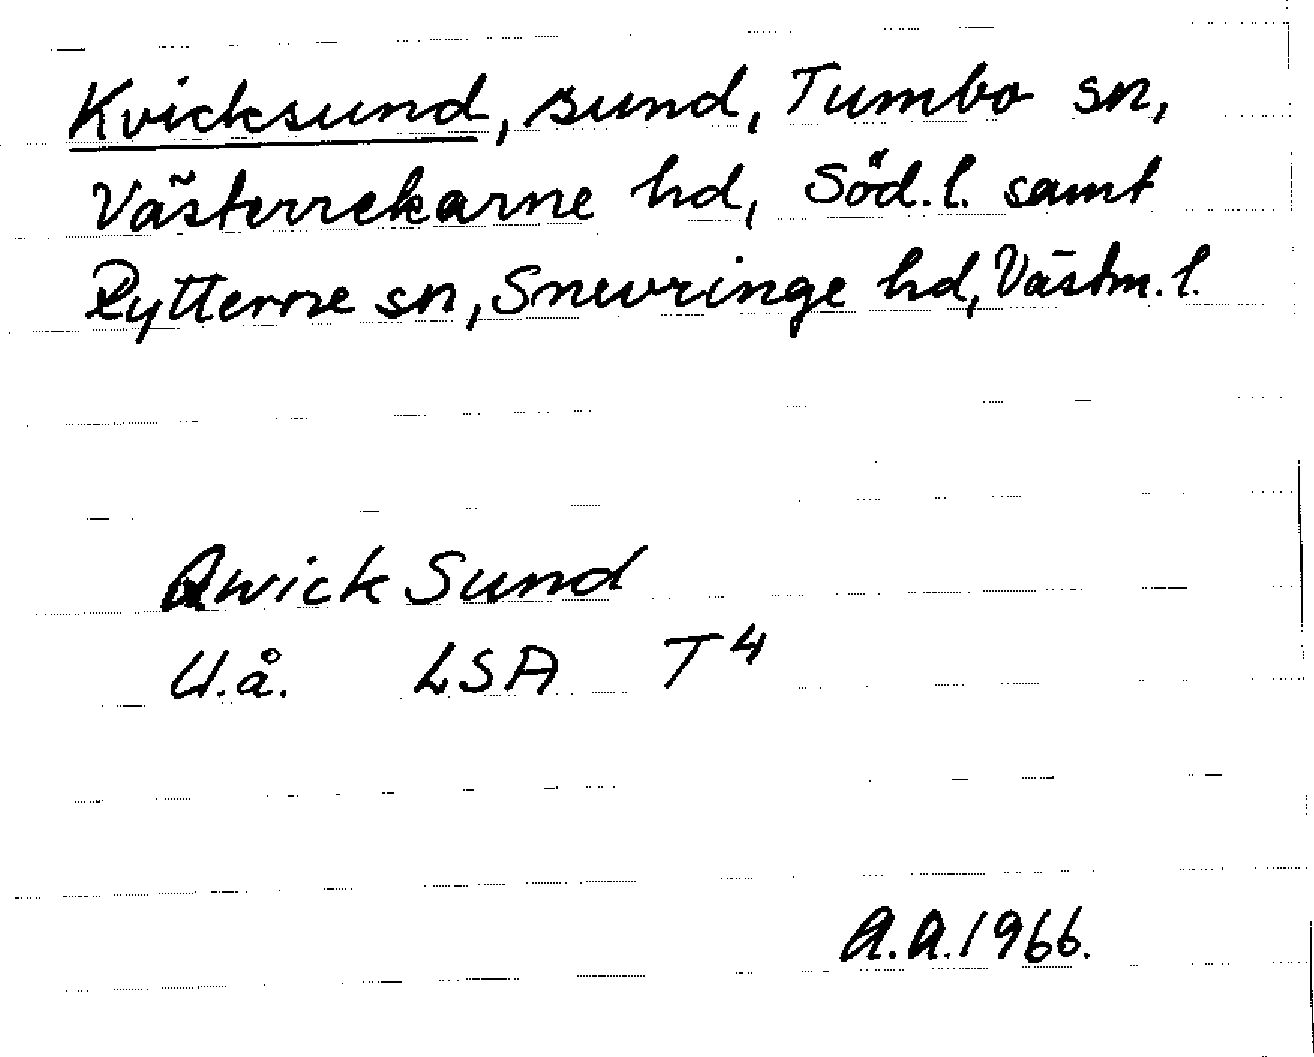 Kvicksund, sund, Tumbo sn,
Västerrekarne hd, Söd.l. samt
Rytterne sn, Snevringe hd, Västm.l.
Qwick Sund
U.å. LSA T4
A.A.1966.